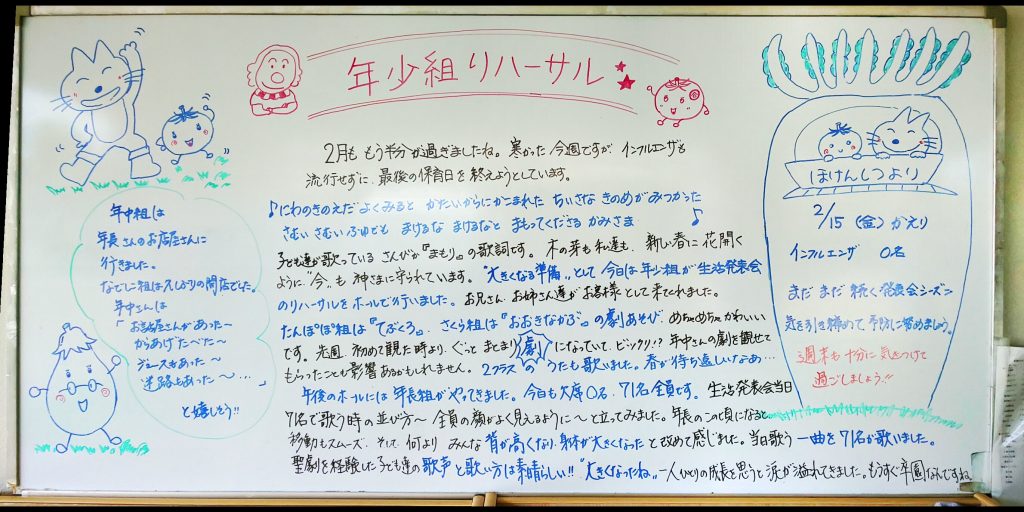 年少組リハーサル
2月も もう半分が過ぎましたね。寒かった今週ですが インフルエンザも
流行せずに、最後の保育日を終えようとしています。
♪にわのきのえだ よくみると かたいからにかこまれた ちいさな きのめがみつかった
さむい さむい ふゆでも まけるな まけるなと まもってくださる かみさま ♪
子ども達が歌っている さんびか『まもり』の歌詞です。木の芽も私達も、新しい春に花開く
ように"今"も 神さまに守られています。"大きくなる準備"として 今日は年少組が生活発表会
のリハーサルをホールで行いました。お兄さん、お姉さん達がお客様として来てくれました。
たんぽぽ組は『てぶくろ』、さくら組は『おおきなかぶ』の劇あそび めちゃめちゃかわいい
です。先週、初めて観た時より、ぐっと まとまり 劇 になっていて、ビックリ!? 年中さんの劇を観せて
もらったことも影響あるかもしれません。2クラスの うたも歌いました。春が待ち遠しいなあ…
午後のホールには 年長組がやってきました。今日も欠席0名、71名全員です。生活発表会当日
71名で歌う時の並び方〜 全員の顔がよく見えるように〜と立ってみました。年長のこの頃になると
移動もスムーズ、そして 何より みんな 背が高くなり、身体が大きくなったと改めて感じました。当日歌う 一曲を71名が歌いました。
聖劇を経験した子ども達の歌声と歌い方は素晴らしい!! "大きくなったね" 一人ひとりの成長を思うと涙が溢れてきました。もうすぐ卒園なんですね
年中組は
年長さんのお店屋さんに
行きました。
なでしこ組は久しぶりの開店でした。
年中さんは
「お店屋さんがあった〜
からあげたべた〜
ジュースもあった〜
迷路もあった〜…」
と嬉しそう!!
ほけんしつより
2/15 (金) かえり
インフルエンザ 0名
まだまだ続く発表会シーズン
気を引き締めて 予防に努めましょう。
週末も十分に気をつけて
過ごしましょう!!